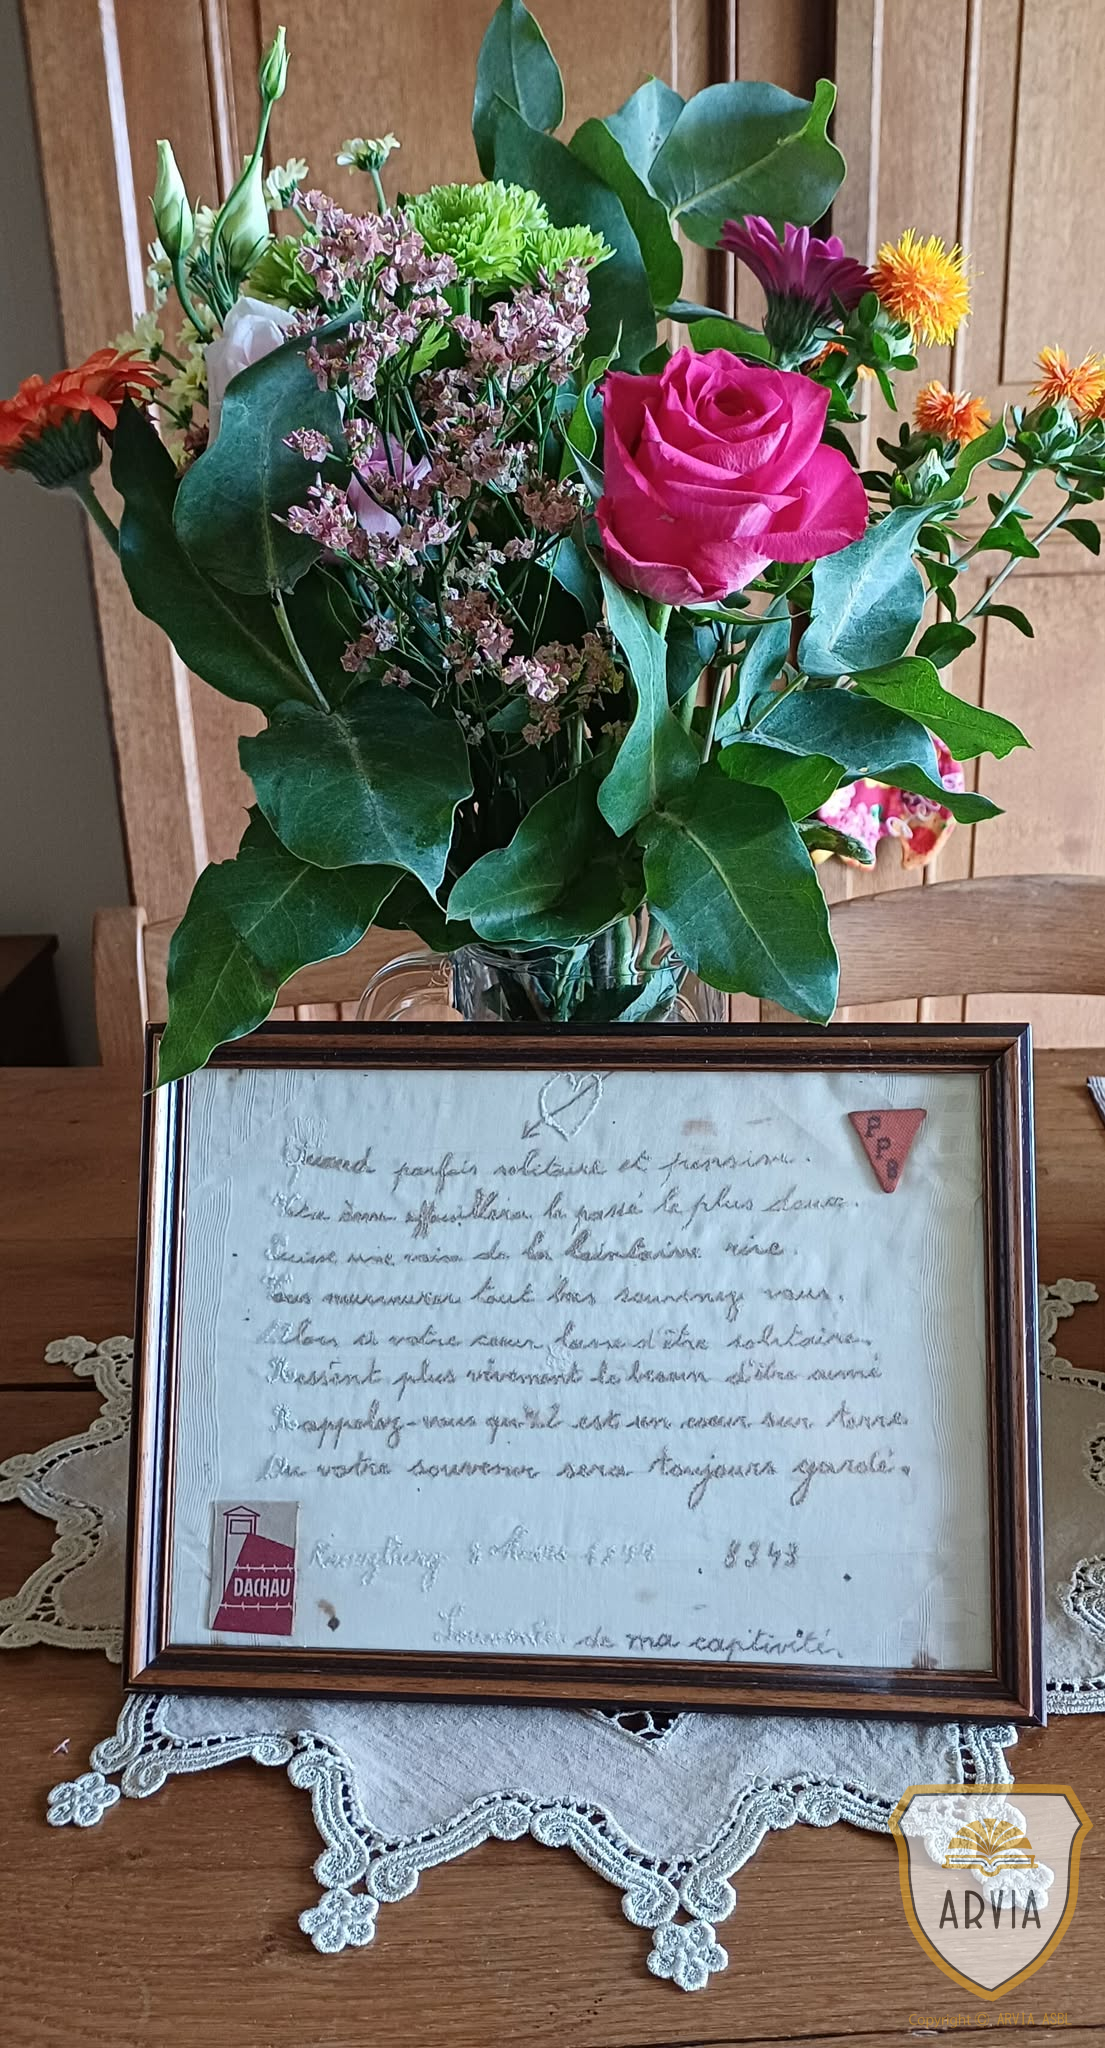 Quand parfois solitaire et pensive.
Votre âme effeuillera le passé le plus doux.
Puisse une voix de la lointaine rive.
Vous murmurer tout bas souvenez vous.
Alors si votre cœur lasse d'être solitaire.
Ressent plus vivement le besoin d'être aimé
Rappelez-vous qu'il est un cœur sur terre
Ou votre souvenir sera toujours gardé.
PPB
DACHAU
Kreuzburg 8 Mars 1944 8343
Souvenir de ma captivité.
ARVIA
Copyright © ARVIA ASBL